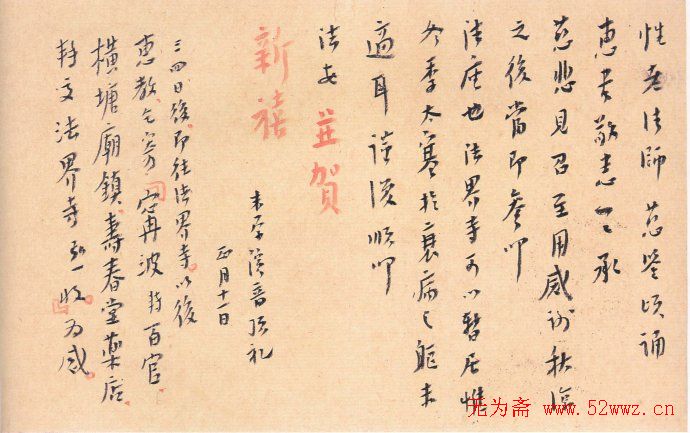 性老法師慈鑒頃誦
惠書敬悉一一承
慈悲見召至用感謝秋涼
之後當即參叩
法座也法界寺可以暫居惟
冬季太寒於衰病之軀未
適耳謹復順叩
法安並賀
新禧
末學演音頂礼
正月十一日
三四日後即往法界寺以後
惠教乞寄寧波轉百官
橫塘廟鎮壽春堂藥店
轉交法界寺弘一收為感
无为斋 www.52wwz.cn